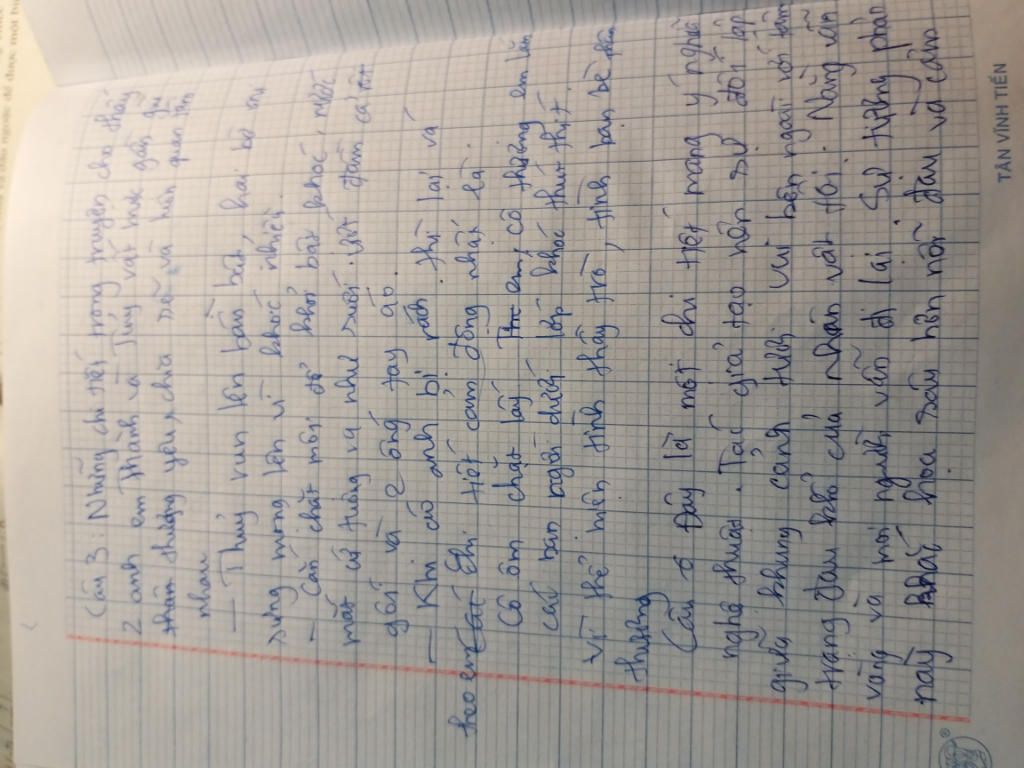 Câu 3: Những chi tiết trong truyện cho thấy
2 anh em Thành và Thủy rất mực gần gũi
thân thương yêu, chia sẻ và luôn quan tâm
nhau
- Thuỷ run lên bần bật, hai bờ mi
sưng mọng lên vì khóc nhiều.
- Cắn chặt môi để khỏi bật khóc, nước
mắt cứ tuông ra như suối. ướt đầm cả một
gối và 2 ống tay áo.
- Khi áo anh bị rách thì lại vá
theo em Chi tiết cảm động nhất là.
Cô ôm chặt lấy em, cô thương em lắm
các bạn ngồi dưới lớp khóc thút thít.
Vì thể hiện tình thầy trò, tình bạn bè thân
thương
Câu 6 Đây là một chi tiết mang ý nghĩa
nghệ thuật. Tác giả tạo nên sự đối lập
giữa khung cảnh tươi vui bên ngoài với tâm
trạng đau khổ của nhân vật tôi. Nắng vẫn
vàng và mọi người vẫn đi lại. Sự tương phản
này khắc họa sâu hơn nỗi đau và cảm
TÂN VĨNH TIẾN